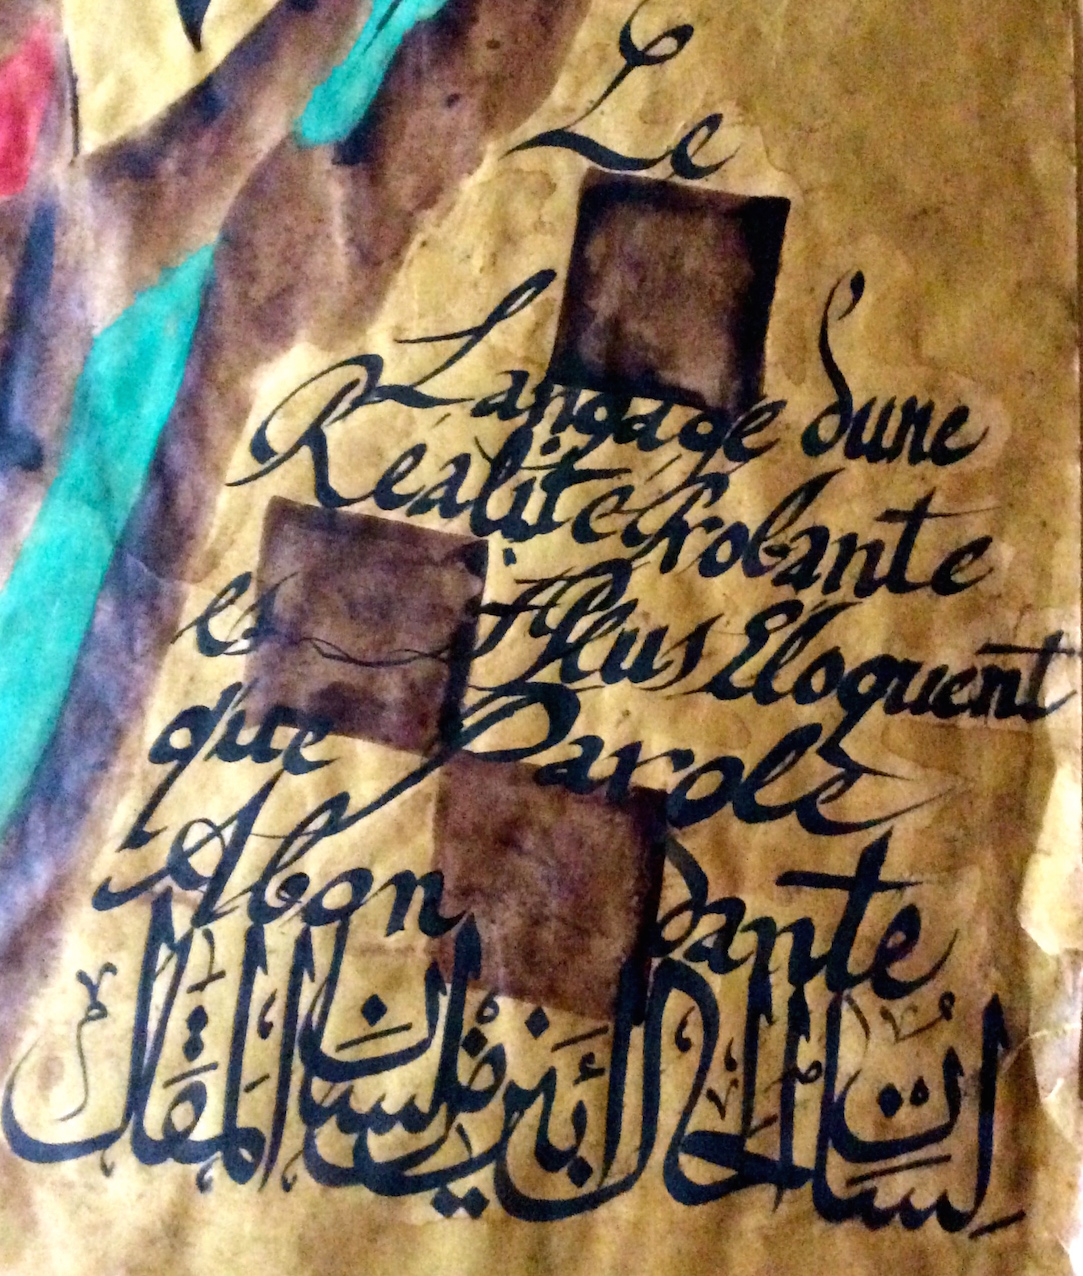 Le
Langage dune
Realité Probante
est Plus Eloquent
que Parole
Abon dante
لسان الحال أبين من لسان المقال